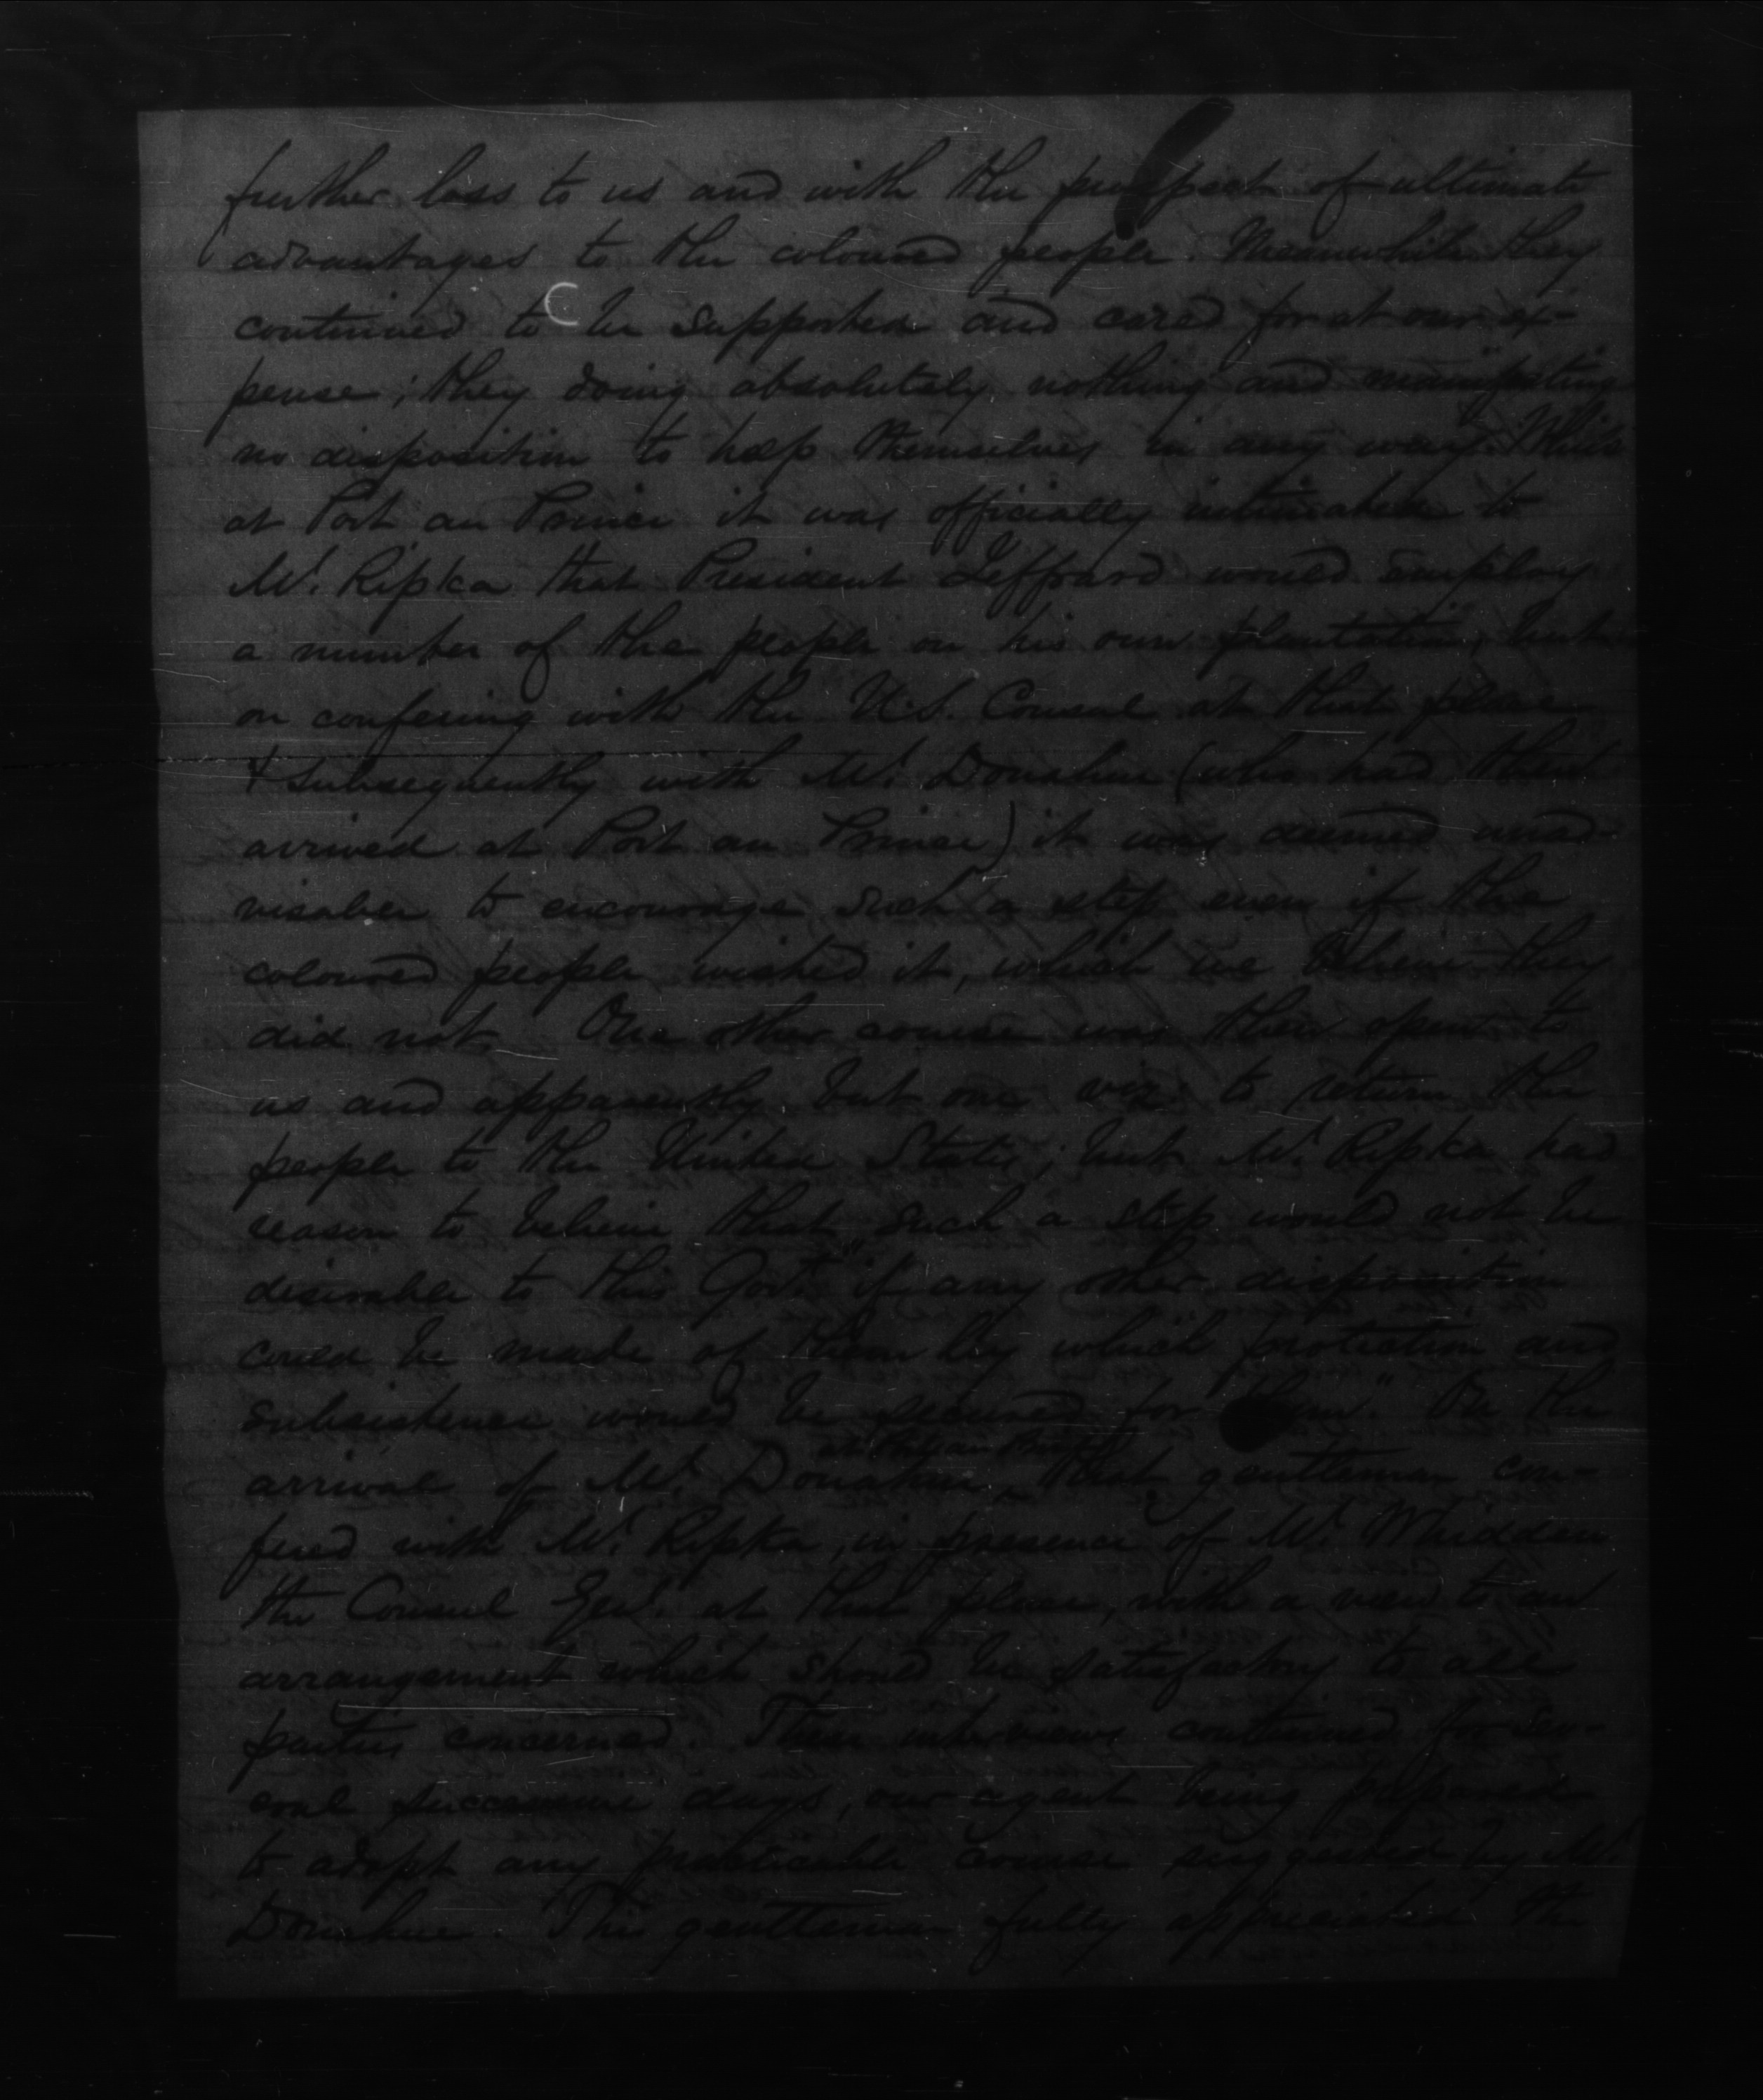 further loss to us and with the prospect of ultimate
advantages to the coloured people. Meanwhile they
continued to be supported and cared for at our ex-
pense; they doing absolutely nothing and manifesting
no disposition to help themselves in any way. Whils
at Port au Prince it was officially intimated to
Mr. Ripka that President Geffrard would employ
a number of the people on his own plantation, but
on confering with the U.S. Consul at that place
& subsequently with Mr. Donahue (who had then
arrived at Port au Prince) it was deemed unad-
visable to encourage such a step even if the
coloured people wished it, which we believe they
did not. One other course was then open to
us and apparently but one viz to return the
people to the United States; but Mr. Ripka had
reason to believe that such a step would not be
desirable to this Govt. "if any other disposition
could be made of them by which protection and
subsistence would be secured for them." On the
arrival of Mr. Donahue at Port au Prince, that gentleman con-
fered with Mr. Ripka, in presence of Mr. Whidden
the Consul Genl. at that place, with a view to an
arrangement which should be satisfactory to all
parties concerned. These interviews continued for sev-
eral successive days, our agent being prepared
to adopt any practicable course suggested by Mr.
Donahue. This gentleman fully appreciated the